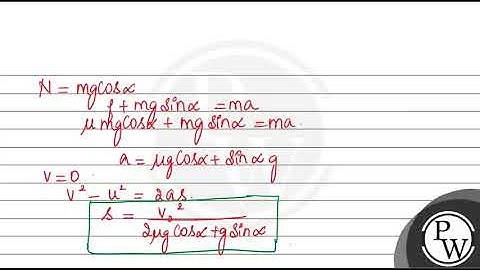 N = mgcosα
f + mg sinα = ma
μ mgcosα + mg sinα = ma.
a = μgcosα + sinα g
v=0
v² - u² = 2as.
s = v₀² / 2μg cosα + g sinα
PW